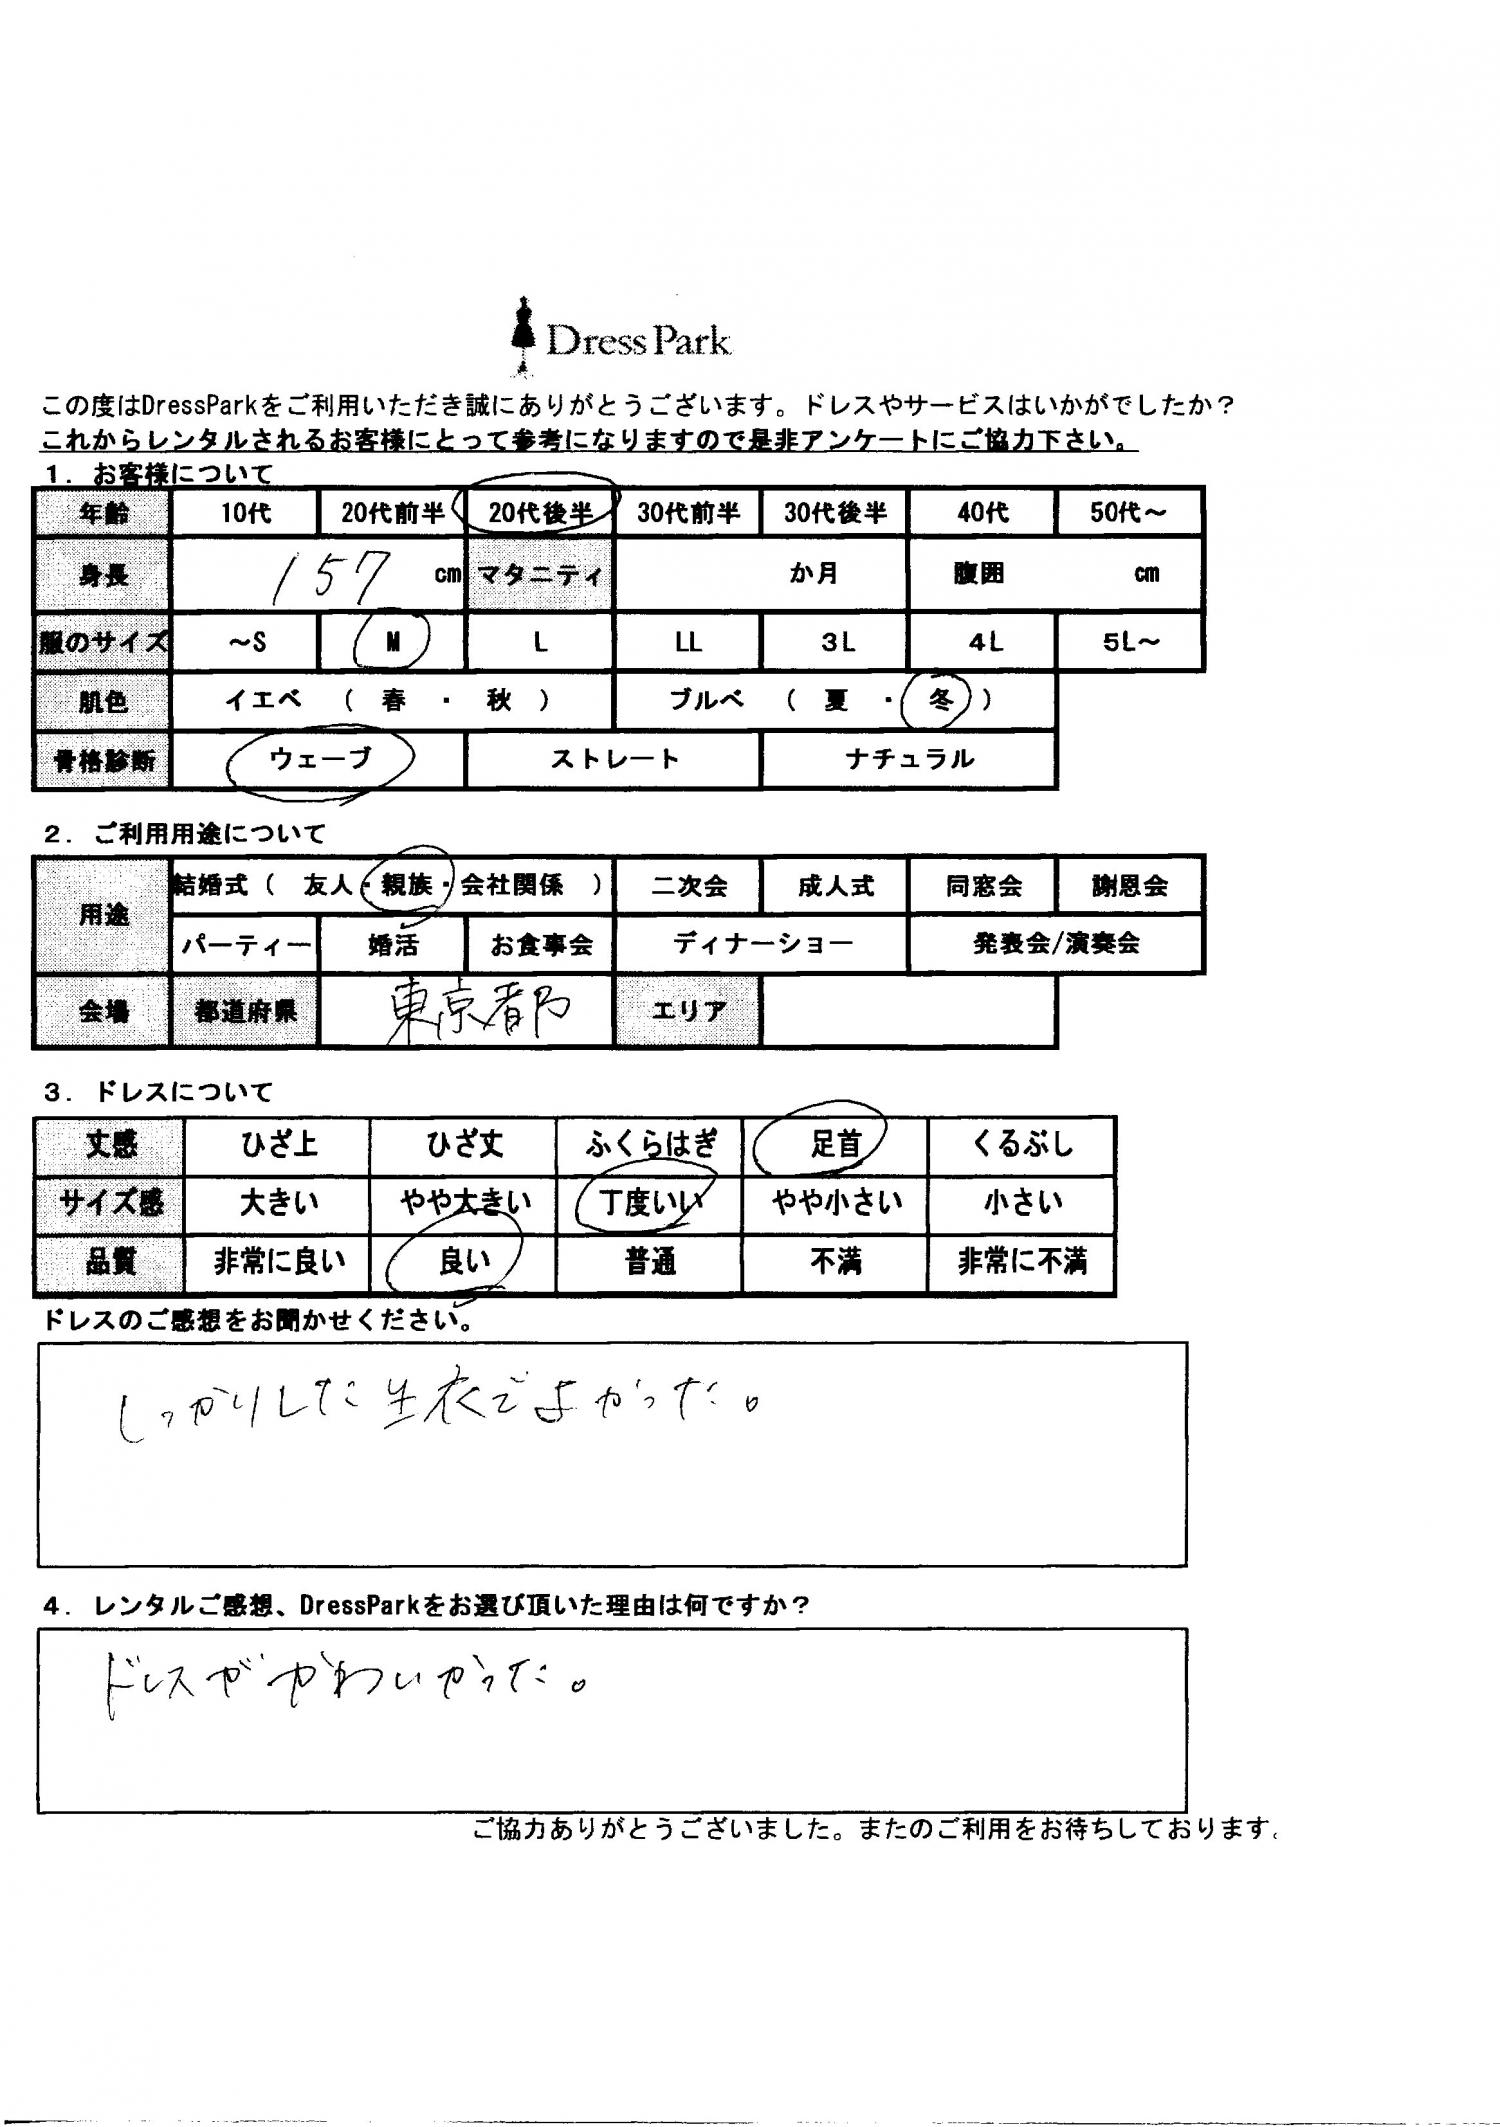 Dress Park
この度はDressParkをご利用いただき誠にありがとうございます。ドレスやサービスはいかがでしたか？
これからレンタルされるお客様にとって参考になりますので是非アンケートにご協力下さい。
１．お客様について
年齢 10代 20代前半 20代後半 30代前半 30代後半 40代 50代～
身長 157 cm マタニティ か月 腹囲 cm
服のサイズ ～S M L LL 3L 4L 5L～
肌色 イエベ （ 春 ・ 秋 ） ブルベ （ 夏 ・ 冬 ）
骨格診断 ウェーブ ストレート ナチュラル
２．ご利用用途について
用途 結婚式（ 友人・親族・会社関係 ） 二次会 成人式 同窓会 謝恩会
パーティー 婚活 お食事会 ディナーショー 発表会/演奏会
会場 都道府県 東京都 エリア
３．ドレスについて
丈感 ひざ上 ひざ丈 ふくらはぎ 足首 くるぶし
サイズ感 大きい やや大きい 丁度いい やや小さい 小さい
品質 非常に良い 良い 普通 不満 非常に不満
ドレスのご感想をお聞かせください。
しっかりした生衣でよかった。
４．レンタルご感想、DressParkをお選び頂いた理由は何ですか？
ドレスがかわいかった。
ご協力ありがとうございました。またのご利用をお待ちしております。